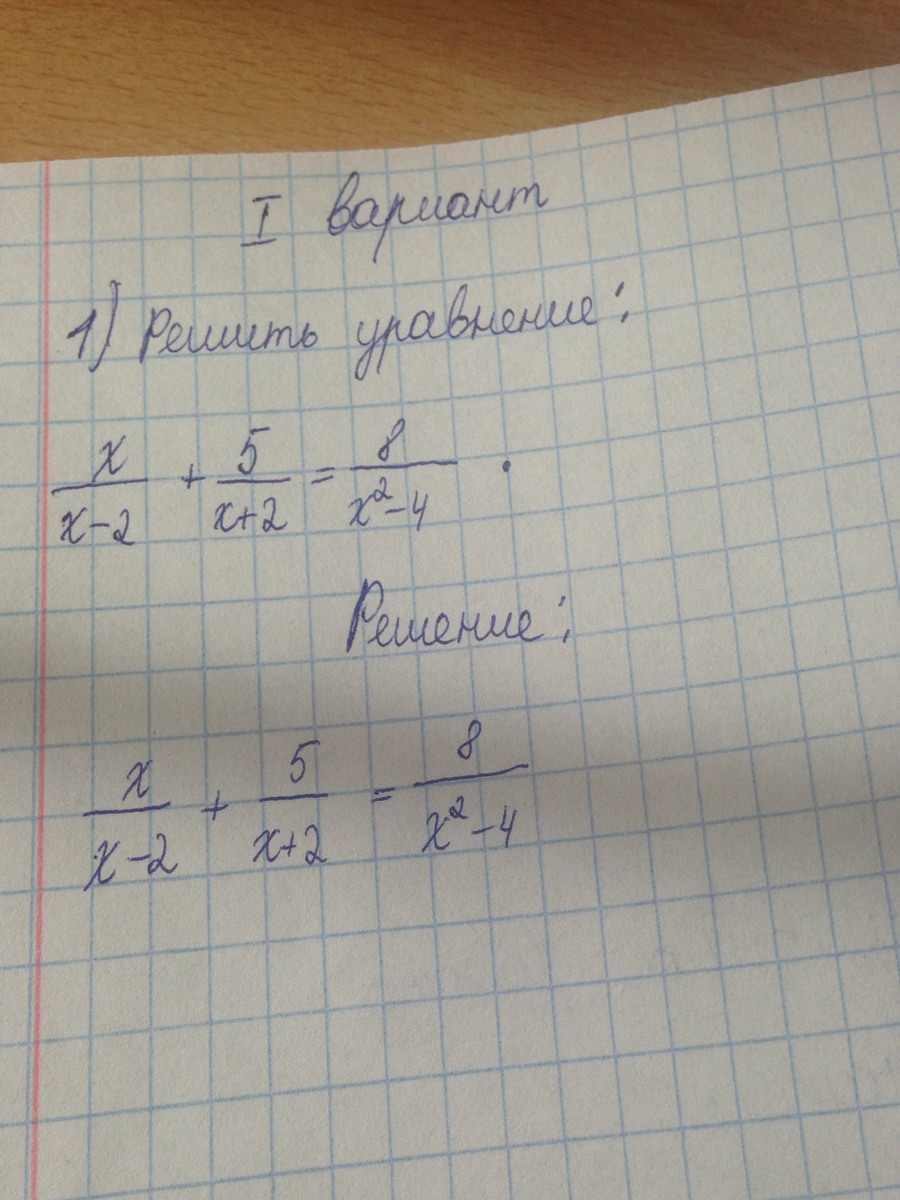 I вариант
1) Решить уравнение:
x/(x-2) + 5/(x+2) = 8/(x²-4) .
Решение:
x/(x-2) + 5/(x+2) = 8/(x²-4)